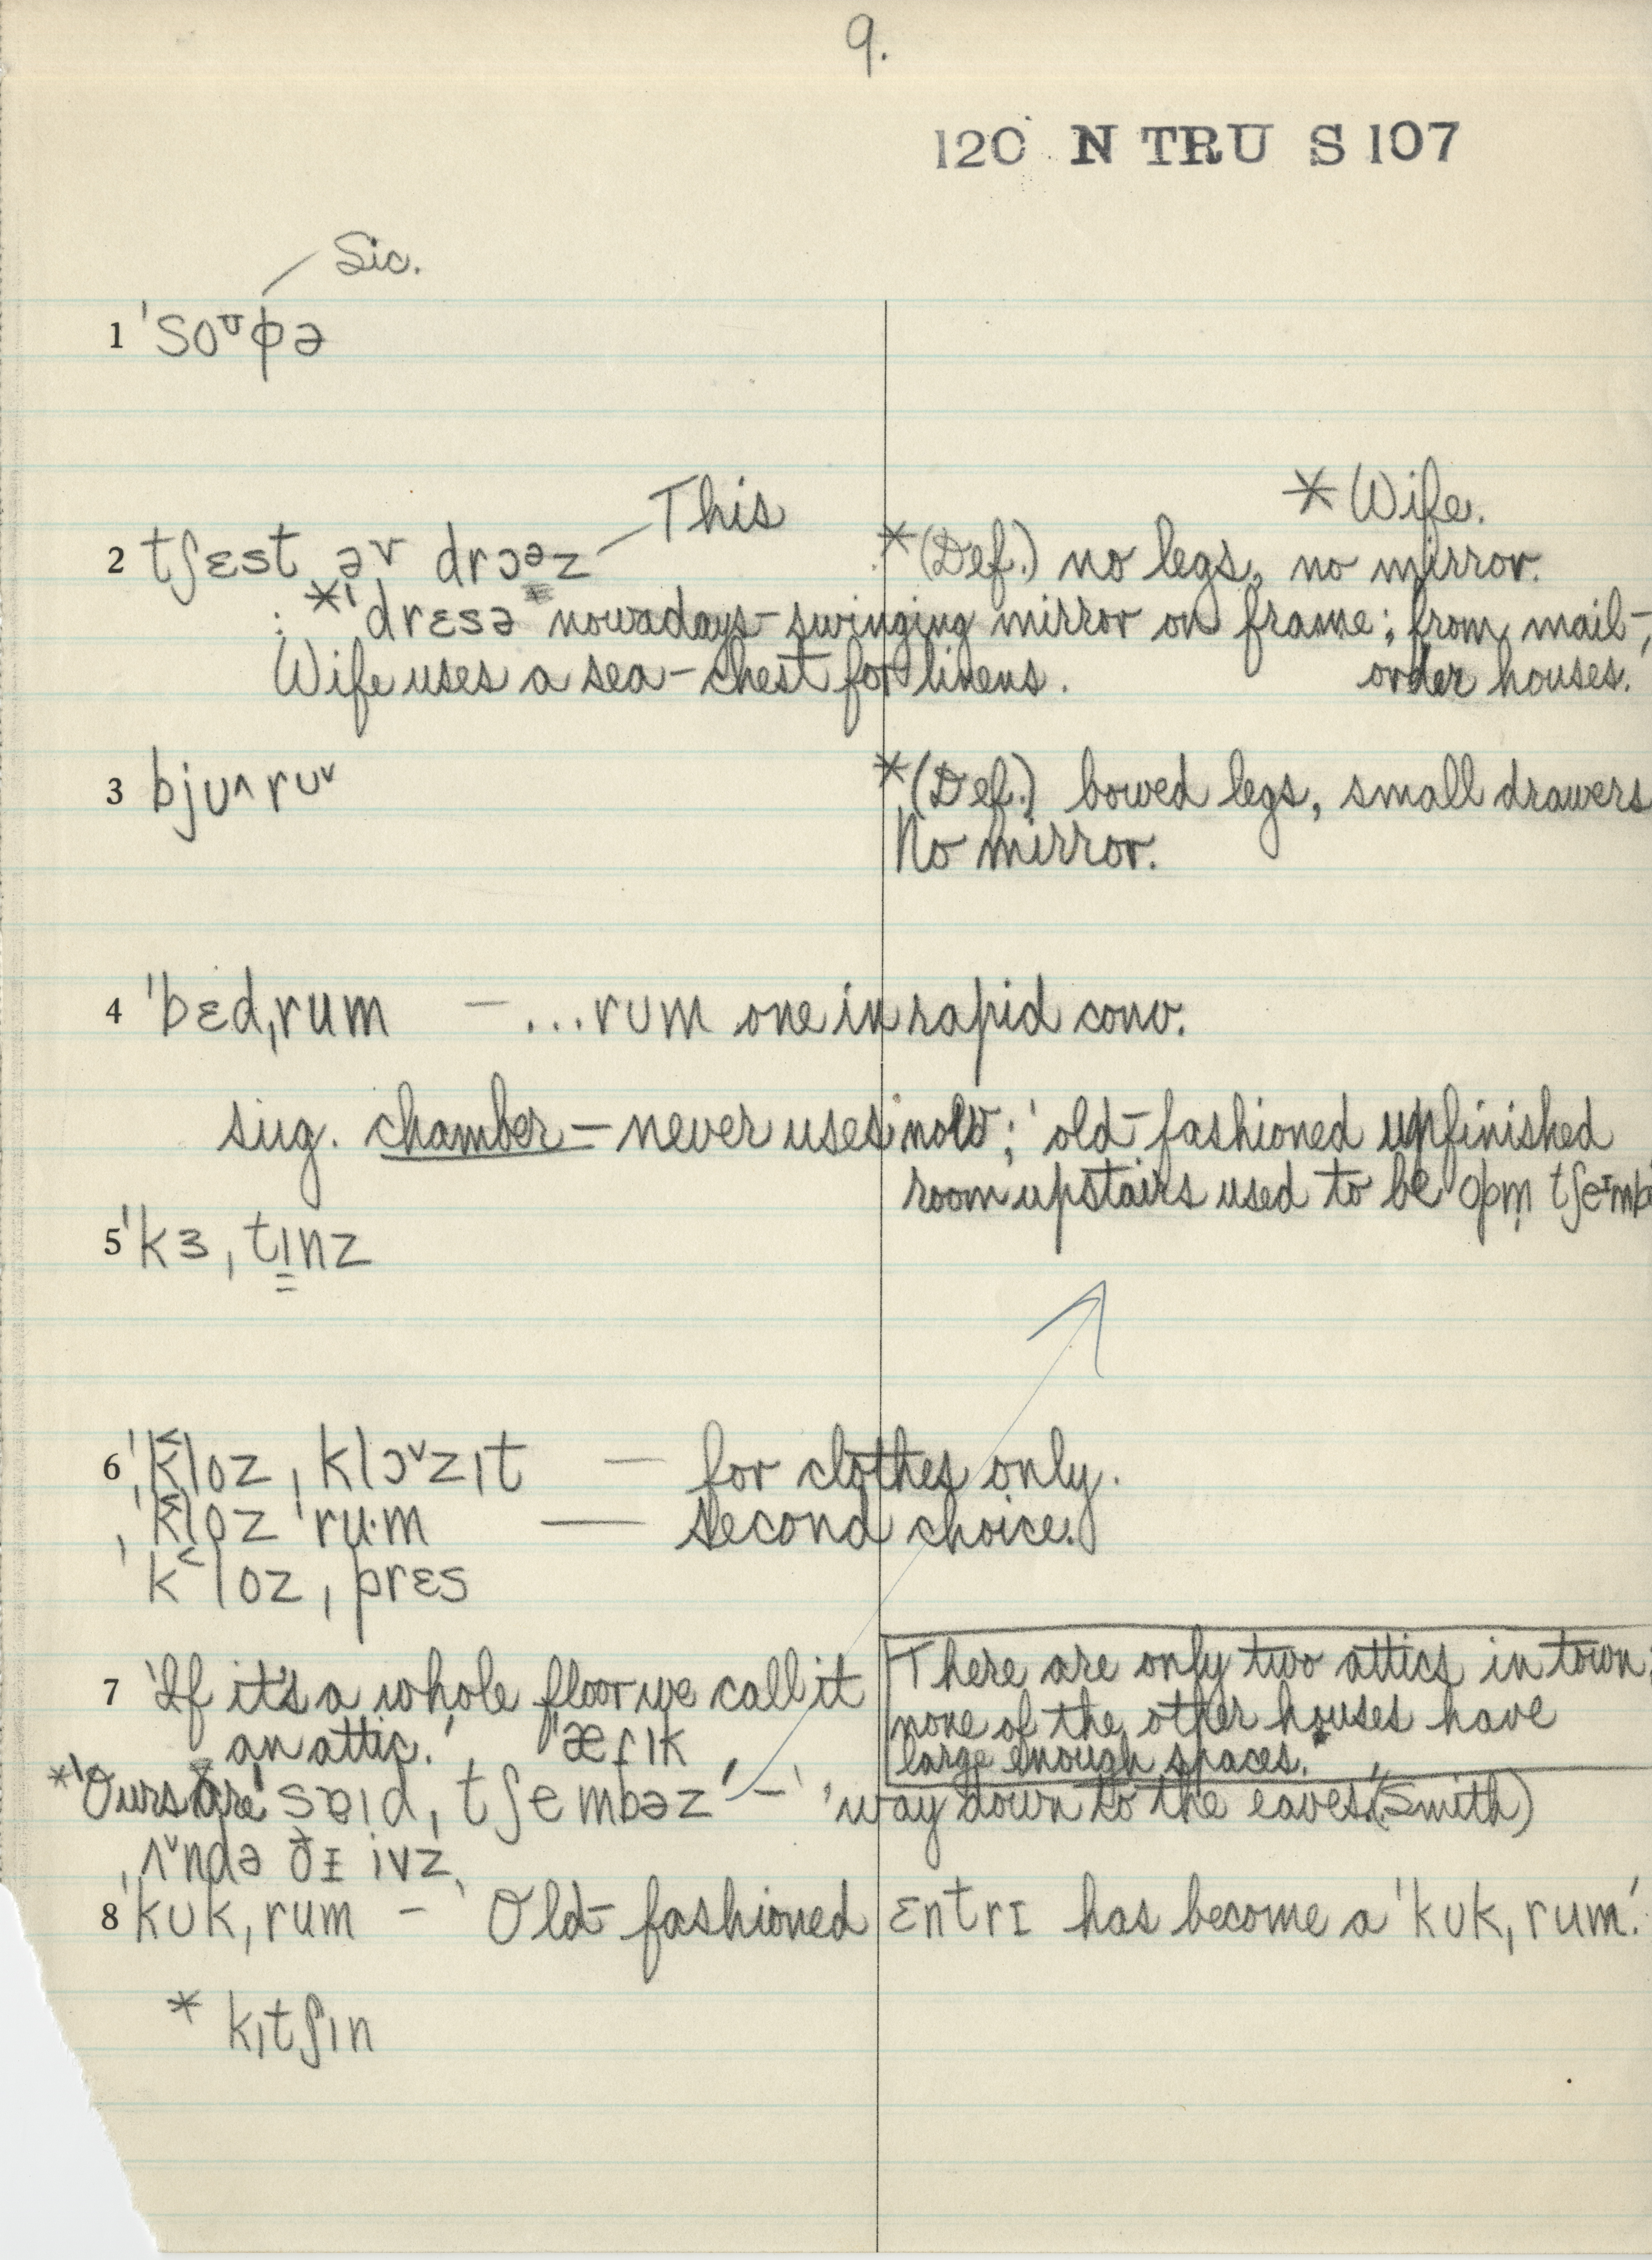 9.
120 N TRU S 107
Sic.
1 ˈsoᶷɸə
This
* Wife.
2 tʃɛst ə˅ drɔᵊz *(Def.) no legs, no mirror.
: *ˈdrɛsə nowadays – swinging mirror on frame; from mail-
Wife uses a sea-chest for linens. order houses.
3 bjʊ˄rʊ˅ *(Def.) bowed legs, small drawers
No mirror.
4 ˈbɛdˌrum – ...rʊm one in rapid conv.
sug. chamber – never uses now; 'old-fashioned unfinished
room upstairs used to be opm̩ tʃeᶦmb
5 ˈkɜˌtɪnz
6 ˈk˂lozˌklɔ˅zɪt – for clothes only.
ˌˈk˂loz ˈru·m — Second choice.
ˌˈk˂lozˌprɛs
7 'If it's a whole floor we call it
an attic.' ˈæɾɪk
There are only two attics in town;
none of the other houses have
large enough spaces.
*'Ours are ˈsɐɪdˌtʃembəz' – 'way down to the eaves.' (Smith)
ˌʌ˅ndə ðɪ ivz
8 ˈkʊkˌrum – 'Old-fashioned ɛntrɪ has become a ˈkʊkˌrum.'
* kɪtʃɪn